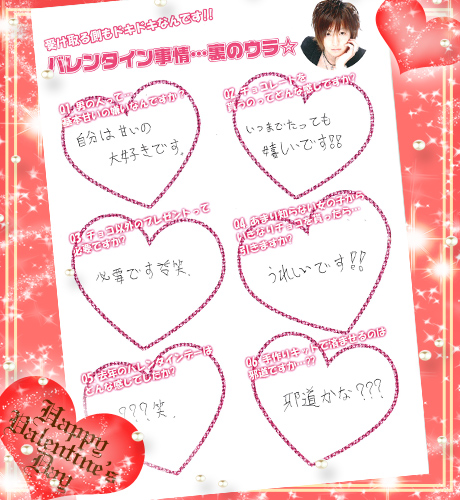 受け取る側もドキドキなんです!!
バレンタイン事情…裏のウラ☆
01 男の人って…
基本甘いの嫌いなんですか?
自分は甘いの
大好きです。
02 チョコレートを
貰うのってどんな感じですか?
いつまでたっても
嬉しいです!!
03 チョコ以外のプレゼントって
必要ですか?
必要です苦笑.
04 あまり知らない女の子から
いきなりチョコを貰ったら…
引きますか?
うれしいです!!
05 去年のバレンタインデーは
どんな感じでしたか?
???笑.
06 手作りキットで済ませるのは
邪道ですか…??
邪道かな???
Happy
Valentine's
Day